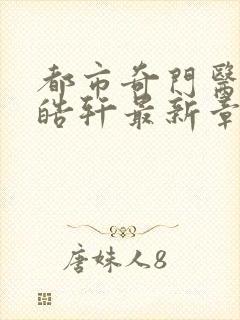 都市奇門醫
皓軒最新章
唐妹人8